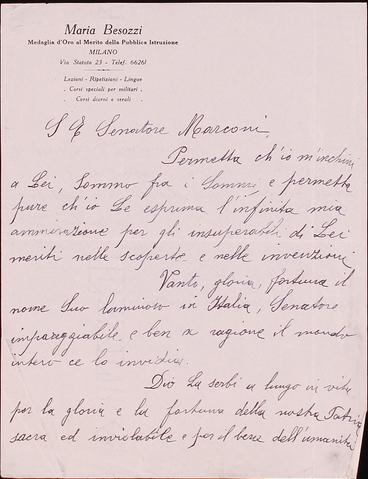 Maria Besozzi
Medaglia d'Oro al Merito della Pubblica Istruzione
MILANO
Via Statuto 23 - Telef. 66261
Lezioni - Ripetizioni - Lingue
. Corsi speciali per militari .
. Corsi diurni e serali .
S E Senatore Marconi,
Permetta ch'io m'inchini
a Lei, Sommo fra i Sommi, e permetta
pure ch'io Le esprima l'infinita mia
ammirazione per gli insuperabili di Lei
meriti nelle scoperte e nelle invenzioni
Vanto, gloria, fortuna il
nome Suo luminoso in Italia, Senatore
impareggiabile e ben a ragione il mondo
intero ce lo invidia.
Dio La serbi a lungo in vita
per la gloria e la fortuna della nostra Patria
sacra ed inviolabile e per il bene dell'umanità